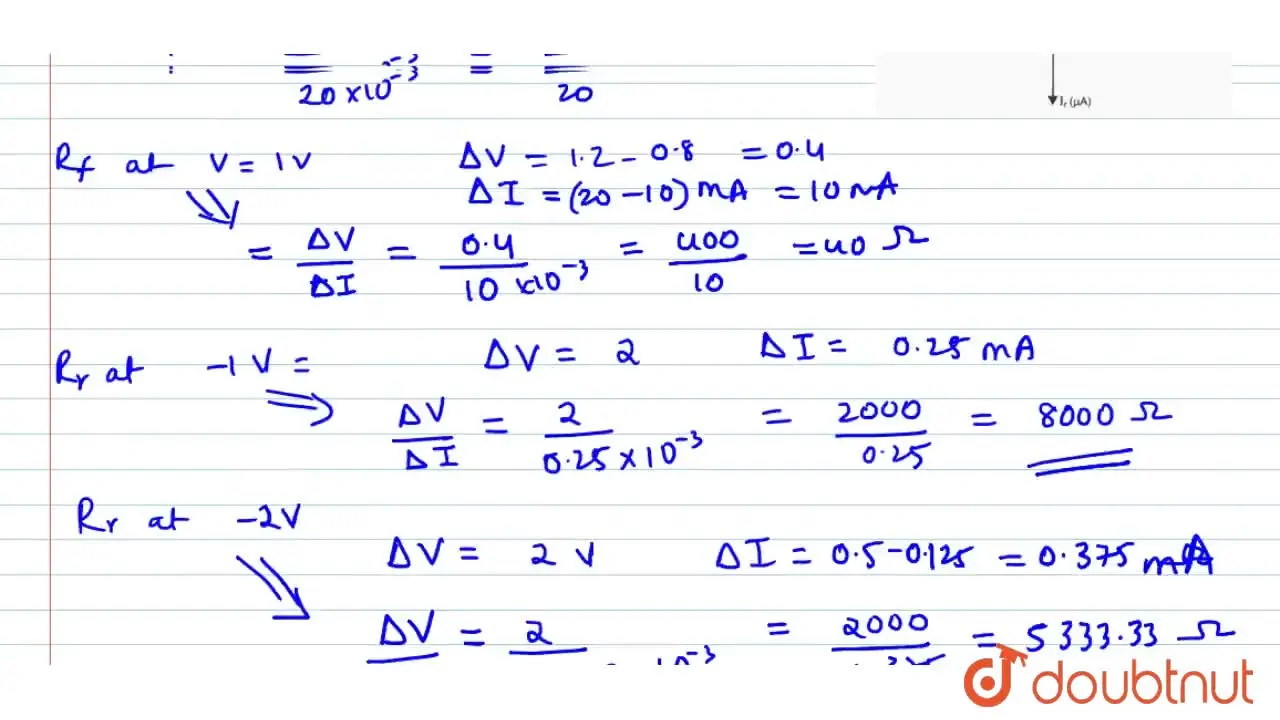 20 × 10⁻³ = 20
I_r (μA)
R_f at V = 1V ΔV = 1.2 - 0.8 = 0.4
ΔI = (20 - 10) mA = 10 mA
= ΔV/ΔI = 0.4/10 × 10⁻³ = 400/10 = 40 Ω
R_r at -1 V = ΔV = 2 ΔI = 0.25 mA
ΔV/ΔI = 2/0.25 × 10⁻³ = 2000/0.25 = 8000 Ω
R_r at -2V
ΔV = 2 V ΔI = 0.5 - 0.125 = 0.375 mA
ΔV = 2 = 2000 = 5333.33 Ω
doubtnut